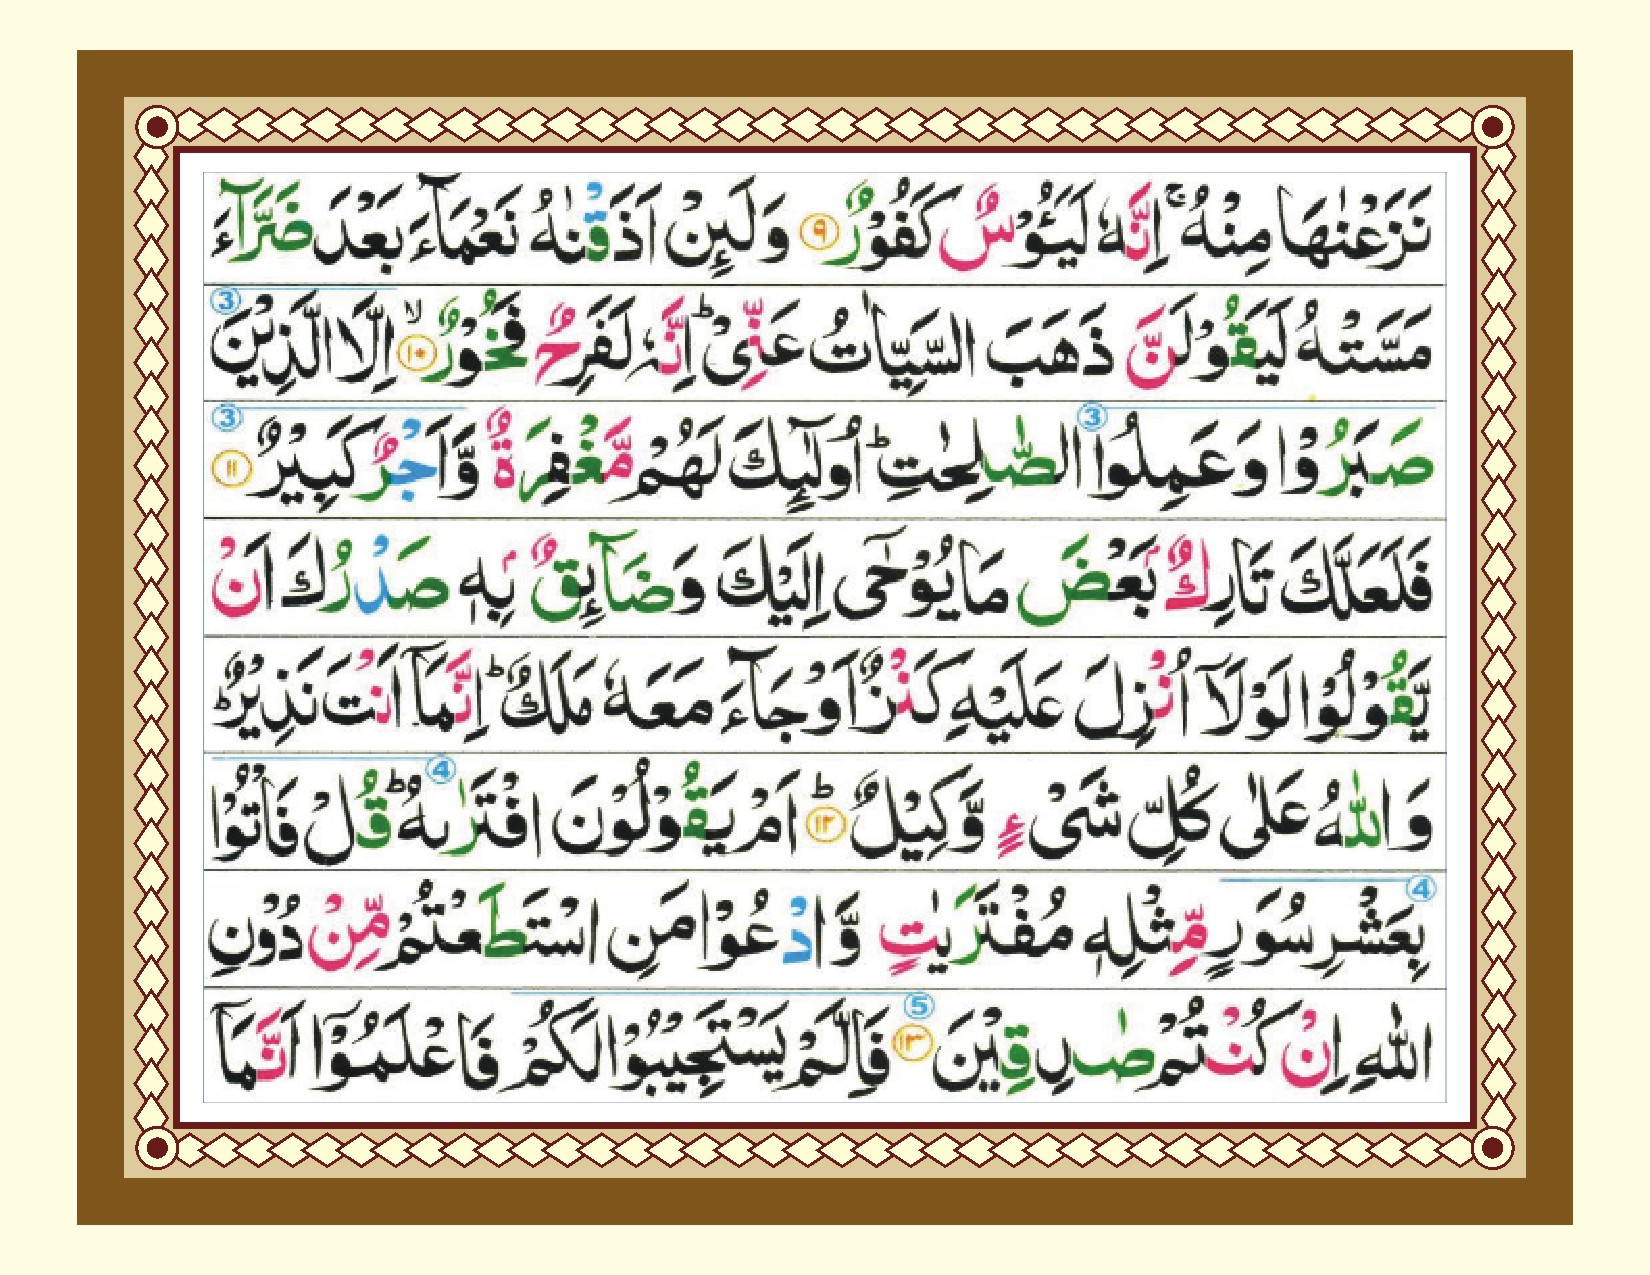 نَزَعْنٰهَا مِنْهُ ۚ اِنَّهٗ لَيَـُٔوْسٌ كَفُوْرٌ ۹ وَلَىِٕنْ اَذَقْنٰهُ نَعْمَآءَ بَعْدَ ضَرَّآءَ
مَسَّتْهُ لَيَقُوْلَنَّ ذَهَبَ السَّيِّاٰتُ عَنِّىْ ؕ اِنَّهٗ لَفَرِحٌ فَخُوْرٌ ۙ ۱۰ اِلَّا الَّذِيْنَ 3
صَبَرُوْا وَعَمِلُوا 3 الصّٰلِحٰتِ ؕ اُولٰٓىِٕكَ لَهُمْ مَّغْفِرَةٌ وَّاَجْرٌ كَبِيْرٌ ۱۱ 3
فَلَعَلَّكَ تَارِكٌۢ بَعْضَ مَا يُوْحٰٓى اِلَيْكَ وَضَآىِٕقٌۢ بِهٖ صَدْرُكَ اَنْ
يَّقُوْلُوْا لَوْلَاۤ اُنْزِلَ عَلَيْهِ كَنْزٌ اَوْ جَآءَ مَعَهٗ مَلَكٌ ؕ اِنَّمَاۤ اَنْتَ نَذِيْرٌ ؕ
وَاللّٰهُ عَلٰى كُلِّ شَىْءٍ وَّكِيْلٌ ؕ ۱۲ اَمْ يَقُوْلُوْنَ افْتَرٰىهُ ؕ 4 قُلْ فَاْتُوْا
بِعَشْرِ 4 سُوَرٍ مِّثْلِهٖ مُفْتَرَيٰتٍ وَّادْعُوْا مَنِ اسْتَطَعْتُمْ مِّنْ دُوْنِ
اللّٰهِ اِنْ كُنْتُمْ صٰدِقِيْنَ ۱۳ 5 فَاِلَّمْ يَسْتَجِيْبُوْا لَكُمْ فَاعْلَمُوْۤا اَنَّمَاۤ